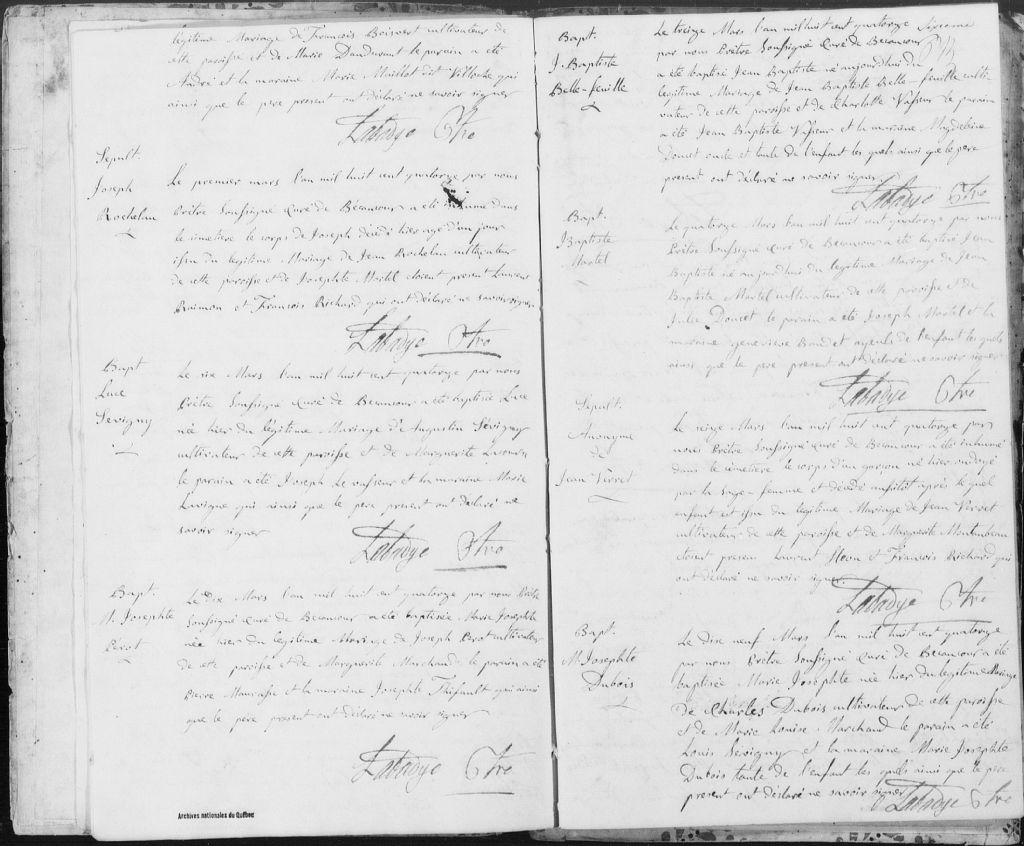 légitime Mariage de François Boisvert cultivateur de
cette paroisse et de Marie Dandurant le parain a été
André et la maraine Marie Maillot dit qui
ainsi que le pere present ont déclaré ne savoir signer
Labadye Ptre
Sepult.
Joseph
Rochelau
Le premier mars l'an mil huit cent quatorze par nous
Prêtre Soussigné Curé de Bécancour a été inhumé dans
le cimetiere le corps de Joseph décédé hier agé d'un jour
issu du legitime Mariage de Jean Rochelau cultivateur
de cette paroisse et de Josephte Martel étoient present Laurent
Raimon et François Richard qui ont déclaré ne savoir signer
Labadye Ptre
Bapt
Luce
Sevigny
Le six Mars l'an mil huit cent quatorze par nous
Prêtre Soussigné Curé de Becancour a été baptisée Luce
née hier du légitime Mariage d'Augustin Sévigny
cultivateur de cette paroisse et de Marguerite
le parain a été Joseph Levasseur et la maraine Marie
Lavigne qui ainsi que le pere present ont déclaré ne
savoir signer
Labadye Ptre
Bapt.
M. Josephte
Perot
Le dix Mars l'an mil huit cent quatorze par nous Prêtre
Soussigné Curé de Becancour a été baptisée Marie Josephte
née hier du legitime Mariage de Joseph Perot cultivateur
de cette paroisse et de Marguerite Marchand le parain a été
Pierre et la maraine Josephte Thifault qui ainsi
que le pere present ont déclaré ne savoir signer
Labadye Ptre
Archives nationales du Québec
Bapt.
J. Baptiste
Belle-feuille
Le treize Mars l'an mil huit cent quatorze Sixieme
par nous Prêtre Soussigné Curé de Becancour
a été baptisé Jean Baptiste né aujourdhui du
legitime Mariage de Jean Baptiste Belle-feuille culti
vateur de cette paroisse et de Charlotte Vasseur le parain
a été Jean Baptiste Vasseur et la maraine Magdeleine
Doucet oncle et tante de l'enfant les quels ainsi que le pere
present ont déclaré ne savoir signer
Labadye Ptre
Bapt.
J Baptiste
Martel
Le quatorze Mars l'an mil huit cent quatorze par nous
Prêtre Soussigné Curé de Becancour a été baptisé Jean
Baptiste né aujourdhui du legitime Mariage de Jean
Baptiste Martel cultivateur de cette paroisse et de
Julie Doucet le parain a été Joseph Martel et la
maraine genevieve ayeuls de l'enfant les quels
ainsi que le pere present ont déclaré ne savoir signer
Labadye Ptre
Sepult.
Anonyme
de
Jean Virret
Le seize Mars l'an mil huit cent quatorze par
nous Prêtre Soussigné Curé de Becancour a été inhumé
dans le cimetiere le corps d'un garçon né hier ondoyé
par la Sage-femme et décédé aussitôt après le quel
enfant est issu du legitime Mariage de Jean Virret
cultivateur de cette paroisse et de Marguerite
étoient present Laurent et François Richard qui
ont déclaré ne savoir signer
Labadye Ptre
Bapt.
M. Josephte
Dubois
Le dixe neuf Mars l'an mil huit cent quatorze
par nous Prêtre Soussigné Curé de Becancour a été
baptisée Marie Josephte née hier du legitime Mariage
de Charles Dubois cultivateur de cette paroisse
et de Marie Louise Marchand le parain a été
Louis Sevigny et la maraine Marie Josephte
Dubois tante de l'enfant les quels ainsi que le pere
present ont déclaré ne savoir signer
Labadye Ptre